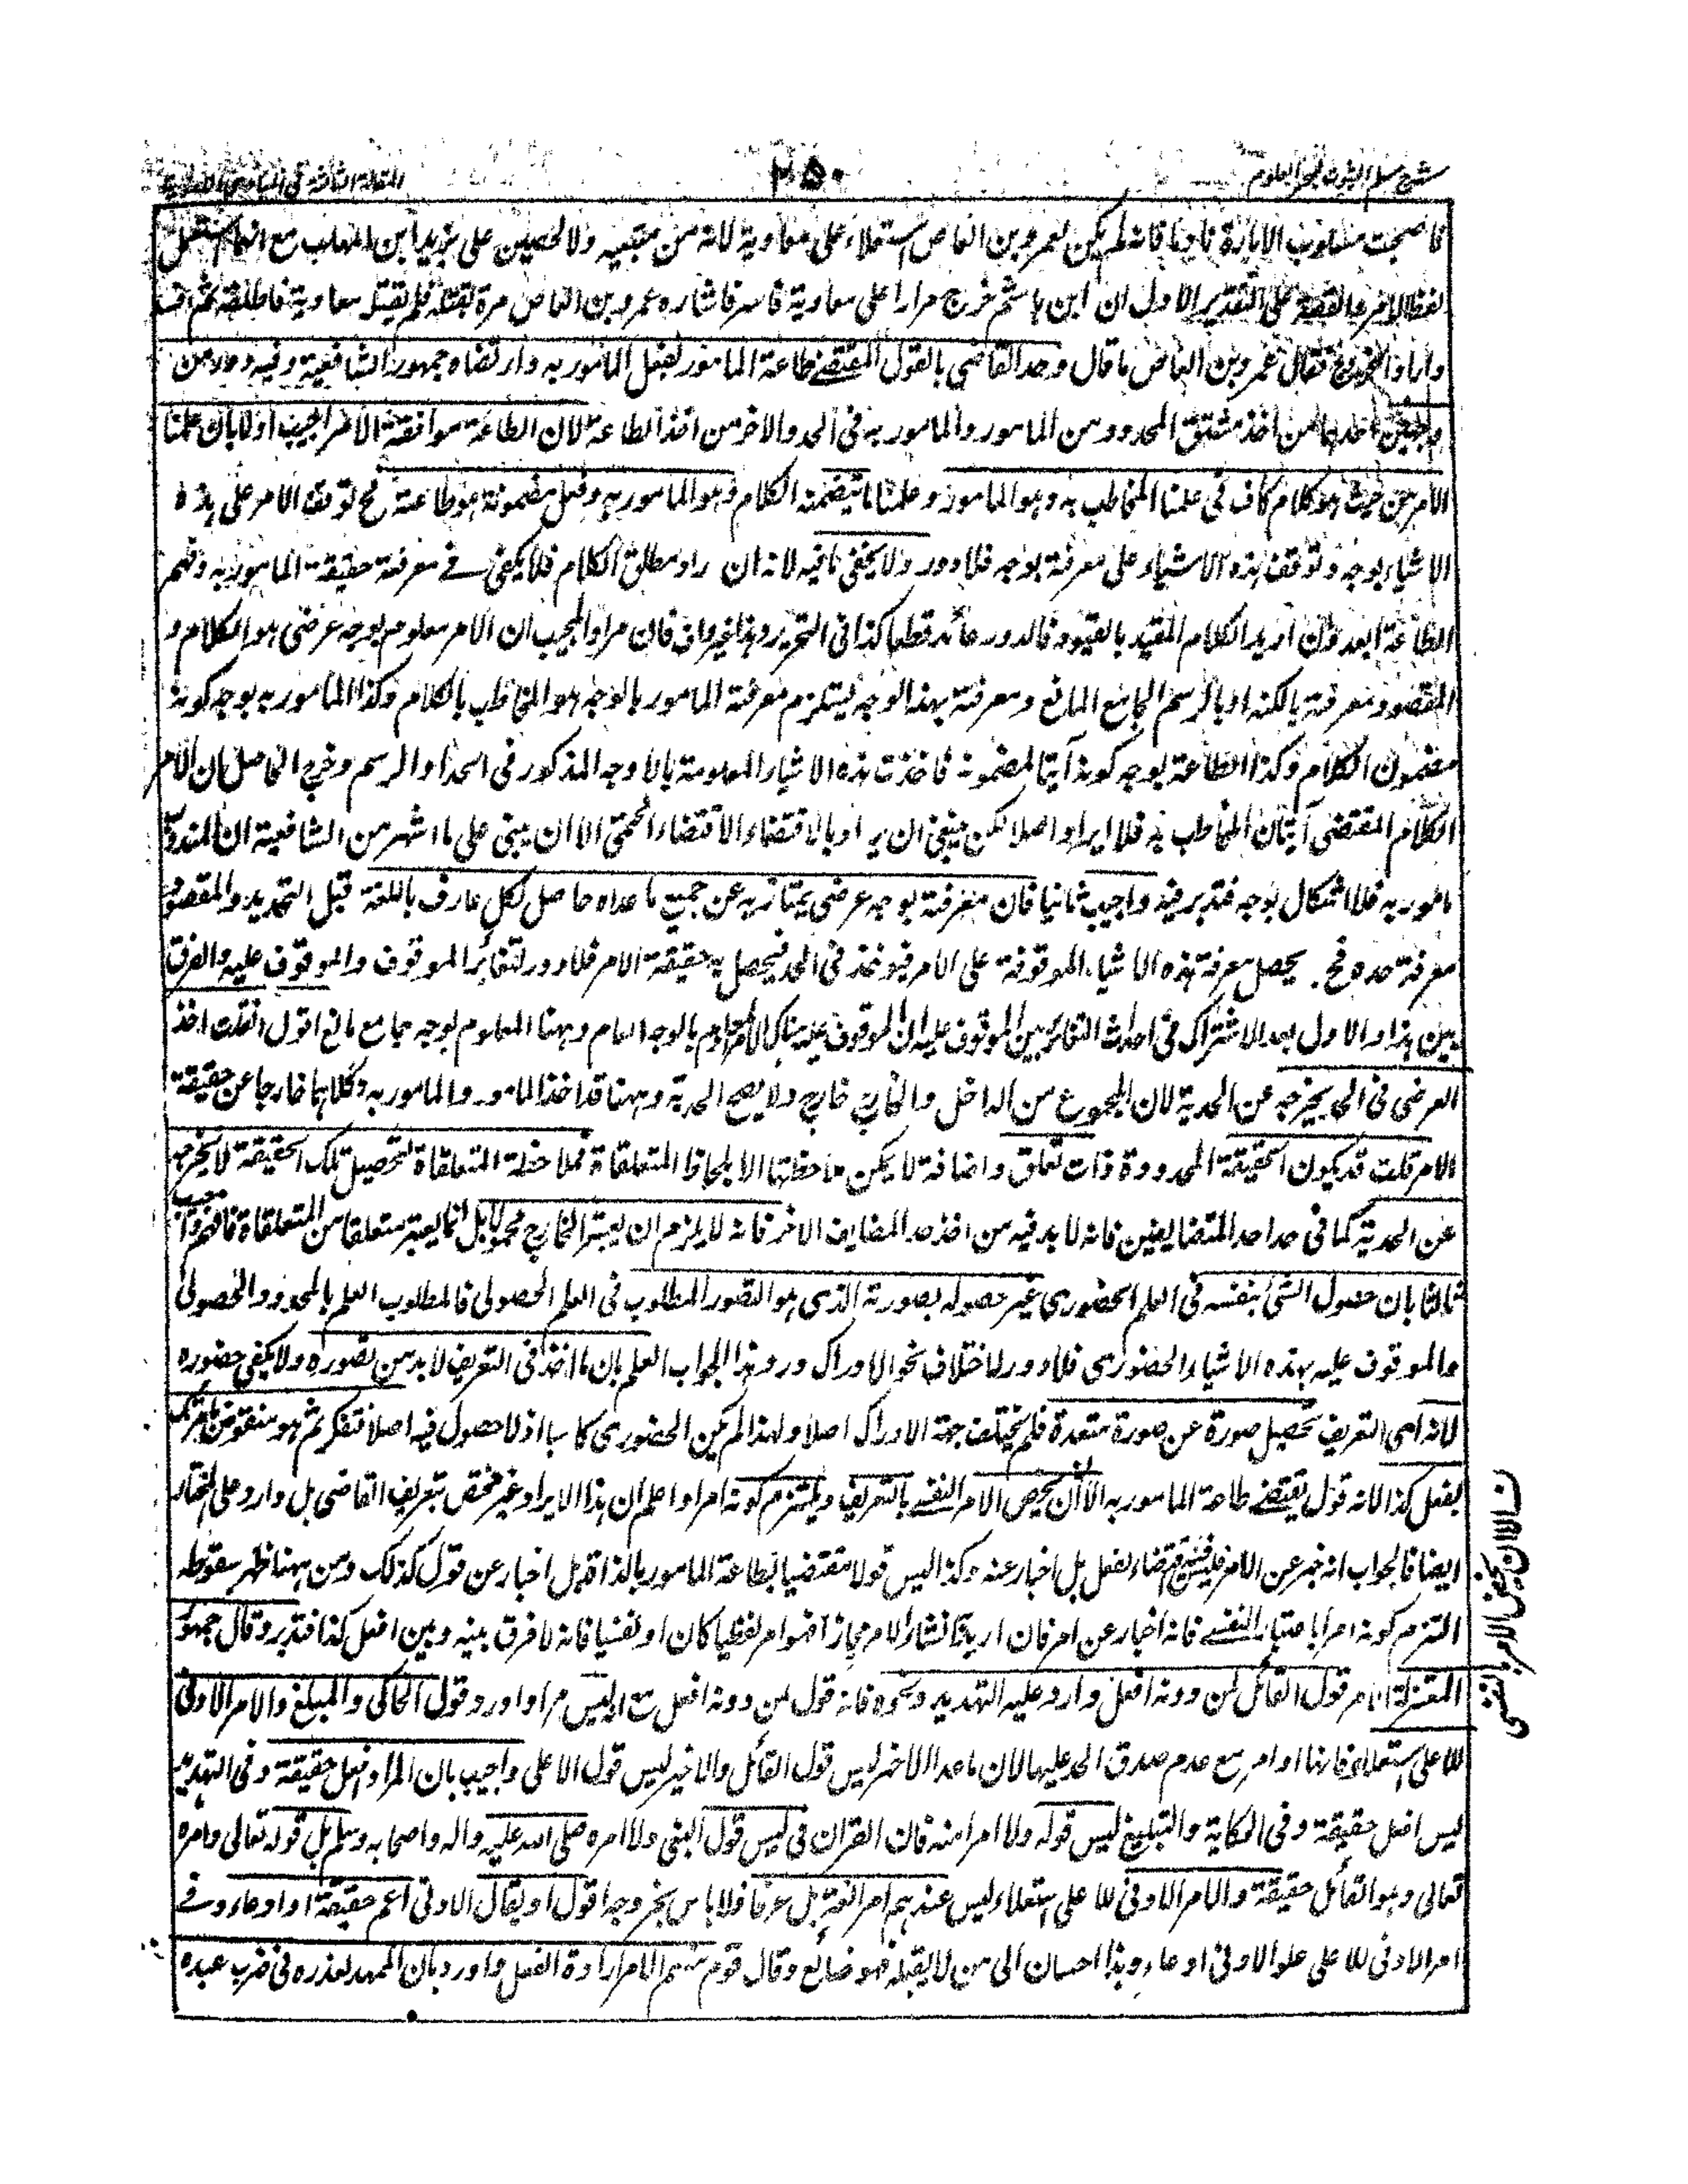 شرح مسلم الثبوت لبحر العلوم ٢٥٠ المقالة الثالثة فى المبادى اللغوية
فاصبحت مسلوب الامارة نادما فانه لم يكن لعمرو بن العاص استعلاء على معاوية لانه من متبعيه ولا لحصين على يزيد ابن المهلب مع انهما استعمل
لفظ الامر والقصة على التقدير الاول ان ابن هاشم خرج مرارا على معاوية فاسره فاشاره عمرو بن العاص مرة لقتله فلم يقتل معاوية فاطلقه ثم
واراد الخروج فقال عمرو بن العاص ما قال وحد القاضى بالقول المقتضے طاعة المامور لفعل المامور به وارتضاه جمهور الشافعية وفيه دور من
وجهين احدهما من اخذ مشتق المحدود من المامور والمامور به فى الحد والاخر من اخذ الطاعة لان الطاعة موافقة الامر اجيب اولا بان علمنا
الامر من حيث هو كلام كاف فى علمنا المخاطب به وهو المامور وعلمنا ما يتضمنه الكلام وهو المامور به وفعل مضمونه هو طاعة فح توقف الامر على هذه
الاشياء بوجه وتوقف هذه الاشياء على معرفة بوجه فلا دور ولا يخفى ما فيه لانه ان اراد مطلق الكلام فلا يكفى فے معرفة حقيقة المامور به وفهم
الطاعة ابعد وان اريد الكلام المقيد بالقيود فالدور عائد قطعا كذا فى التحرير وهذا غير واف فان مراد المجيب ان الامر معلوم بوجه عرضى هو الكلام و
المقصود معرفة بالكنه او بالرسم الجامع المانع ومعرفة بهذا الوجه يستلزم معرفة المامور بالوجه هو المخاطب بالكلام وكذا المامور به بوجه كونه
مضمون الكلام وكذا الطاعة بوجه كونه آتيا لمضمونه فاخذت هذه الاشياء المعلومة بالاوجه المذكور فى الحد او الرسم وخرج الحاصل ان الامر
الكلام المقتضى اتيان المخاطب به فلا ايراد اصلا لكن ينبغى ان يراد بالاقتضاء الاقتضاء الحتمى الا ان يبنى على ما اشتهر من الشافعية ان المندوب
مامور به فلا اشكال بوجه فتدبر فيه واجيب ثانيا فان معرفة بوجه عرضى يمتاز به عن جميع ما عداه حاصل لكل عارف باللغة قبل التحديد والمقصود
معرفة حده فح يحصل معرفة هذه الاشياء الموقوفة على الامر فيوخذ فى الحد فيحصل به حقيقة الامر فلا دور لتغائر الموقوف والموقوف عليه والفرق
بين هذا والاول بعد الاشتراك فى احداث التغائر بين الموقوف عليه ان الموقوف عليه هناك الامر المعلوم بالوجه العام وههنا المعلوم بوجه جامع مانع اقول ان قلت اخذ
العرضى فى الحد يخرجه عن الحدية لان المجموع من الداخل والخارج خارج ولا يصح الحدية وههنا قد اخذ المامور والمامور به وكلاهما خارجا عن حقيقة
الامر قلت قد يكون الحقيقة المحدودة ذات تعلق واضافة لا يمكن ملاحظتها الا بلحاظ المتعلقاة فملاحظة المتعلقاة لتحصيل تلك الحقيقة لا يخرجه
عن الحدية كما فى حد احد المتضايفين فانه لا بد فيه من اخذ حد المضايف الاخر فانه لا يلزم ان يعتبر الخارج محمولا بل انما يعتبر متعلقا من المتعلقاة فافهم واجيب
ثالثا بان حصول الشئ بنفسه فى العلم الحضورى غير حصوله بصورته الذى هو التصور المطلوب فى العلم الحصولى فالمطلوب العلم بالمحدود الحصولى
والموقوف عليه بهذه الاشياء الحضورى فلا دور لاختلاف نحو الادراك ورد هذا الجواب العلم بان ما اخذ فى التعريف لا بد من تصوره ولا يكفى حضوره
لانه اى التعريف تحصيل صورة عن صورة متعددة فلم يختلف جهة الادراك اصلا ولهذا لم يكن الحضورى كاسبا اذ لا حصول فيه اصلا فتفكر ثم هو منقوض بامرتك
بفعل كذا لانه قول يقتضے طاعة المامور به الا ان يخص الامر النفسے بالتعريف ويلتزم كونه امرا واعلم ان هذا الايراد غير مختص بتعريف القاضى بل وارد على المختار
ايضا فالجواب انه خبر عن الامر فليس فيه اقتضاء لفعل بل اخبار عنه وكذا ليس قولا مقتضيا لطاعة المامور بالذات بل اخبار عن قول كذلك ومن ههنا ظهر سقوط
التزم كونه امرا باعتبار النفسے فانه اخبار عن امر فان اريد به انشاء الامر مجازا فهو امر لفظيا كان او نفسيا فانه لا فرق بينه وبين افعل كذا فتدبر وقال جمهور
المعتزلة الامر قول القائل لمن دونه افعل وارد عليه التهديد ونحوه فانه قول لمن دونه افعل مع انه ليس مرادا وردو قول الحاكى والمبلغ والامر الادنى
للاعلى استعلاء فانها اوامر مع عدم صدق الحد عليها لان ما عدا الاخر ليس قول القائل والاخير ليس قول الاعلى واجيب بان المراد افعل حقيقة وفى التهديد
ليس افعل حقيقة وفى الحكاية والتبليغ ليس قوله ولا امرا منه فان القران فى ليس قول النبى ولا امره صلى الله عليه واله واصحابه وسلم بل قوله تعالى وامره
تعالى وهو القائل حقيقة والامر الادنى للاعلى استعلاء ليس عندهم امر لغة بل عرفا فلا باس بخروجه اقول او يقال الادنى اعم حقيقة او ادعاء وفے
امر الادنى للاعلى علو الادنى ادعاء وبهذا احسان الى من لا يقبله فهو ضائع وقال قوم منهم الامر ارادة الفعل واورد بان الممهد لعذره فى ضرب عبده